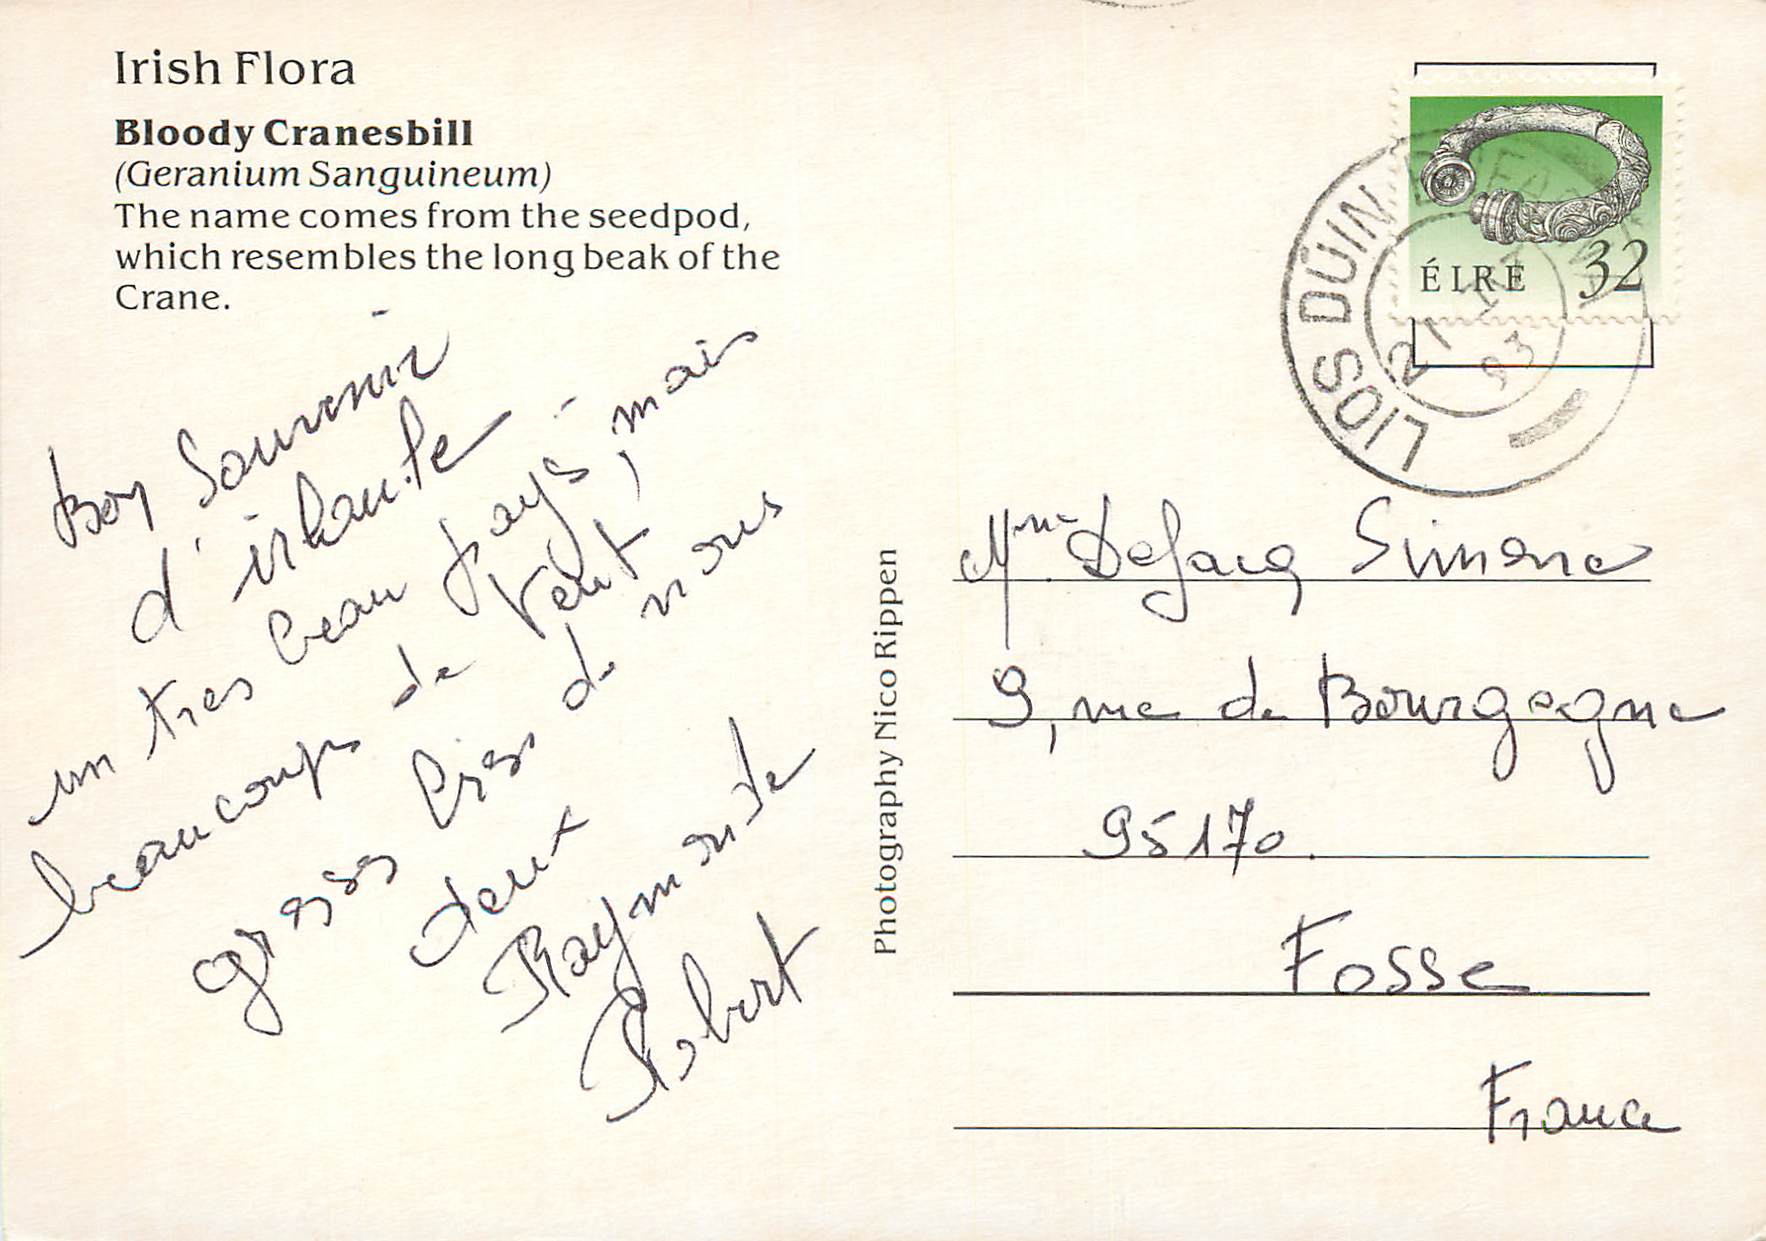 Irish Flora
Bloody Cranesbill
(Geranium Sanguineum)
The name comes from the seedpod,
which resembles the long beak of the
Crane.
Bon Souvenir
d'irlande
un tres beau pays, mais
beaucoups de Vent,
gross bises de nous
deux
Raymonde
Robert
Photography Nico Rippen
ÉIRE 32
LIOS DÚIN
21
93
Mme Defacq Simone
9, rue de Bourgogne
95170.
Fosse
France